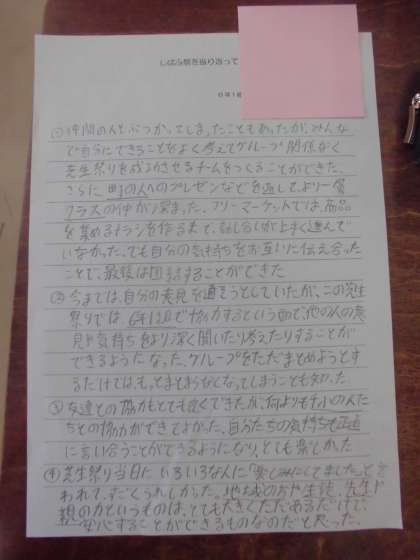 しばふ祭を振り返って
6年1組
①仲間の人とぶつかってしまったこともあったが、みんな
で自分にできることをよく考えてグループ関係なく
芝生祭りを成功させるチームをつくることができた。
さらに町の人へのプレゼンなどを通してより一層
クラスの仲が深まった。フリーマーケットでは、商品
を集めるチラシを作るまで、話し合いが上手く進んで
いなかった。でも自分の気持ちをお互いに伝え合った
ことで、最後は団結することができた
②今までは、自分の意見を通そうとしていたが、この芝生
祭りでは、6年1組で協力するという面で、他の人の意
見や気持ちをより深く聞いたり考えたりすることが
できるようになった。グループをただまとめようとす
るだけでは、もっとまとまらなくなってしまうことも知った
③友達との協力もとても良くできたが、何よりも
人た
ちとの協力ができてよかった。自分たちの気持ちも正直
に言い合うことができるようになり、とても楽しかった
④芝生祭り当日にいろいろな人に「楽しみにしてました」と言
われて、すごくうれしかった。地域のおや生徒、先生や
親の力というものは、とても大きくただあるだけで、
安心することができるものなのだと思った、